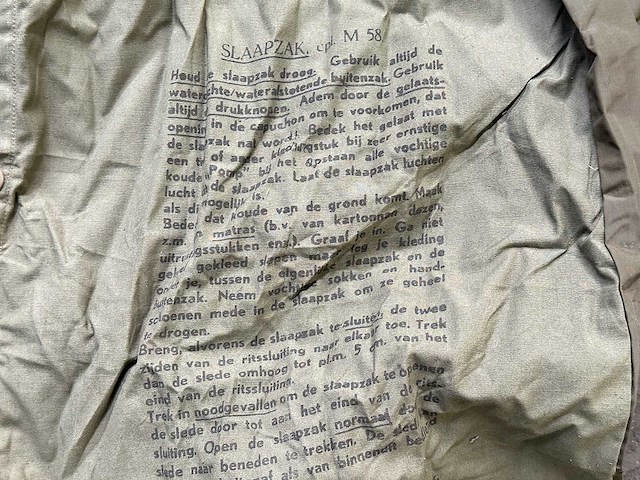 SLAAPZAK, cpl. M 58
Houd de slaapzak droog. Gebruik altijd de
waterdichte/waterafstotende buitenzak. Gebruik
altijd de drukknopen. Adem door de gelaats-
opening in de capuchon om te voorkomen, dat
de slaapzak nat wordt. Bedek het gelaat met
een trui of ander kledingstuk bij zeer ernstige
koude. „Pomp" bij het opstaan alle vochtige
lucht uit de slaapzak. Laat de slaapzak luchten
als dit mogelijk is.
Bedenk dat koude van de grond komt. Maak
z.m. matras (b.v. van kartonnen dozen,
uitrustingsstukken enz.). Graaf je in. Ga niet
geheel gekleed slapen maar leg je kleding
onder je, tussen de eigenlijke slaapzak en de
buitenzak. Neem vochtige sokken en hand-
schoenen mede in de slaapzak om ze geheel
te drogen.
Breng, alvorens de slaapzak te sluiten, de twee
zijden van de ritssluiting naar elkaar toe. Trek
dan de slede omhoog tot plm. 5 cm. van het
eind van de ritssluiting.
Trek in noodgevallen om de slaapzak te openen
de slede door tot aan het eind van de rits-
sluiting. Open de slaapzak normaal door de
slede naar beneden te trekken. De slede
als van binnenen